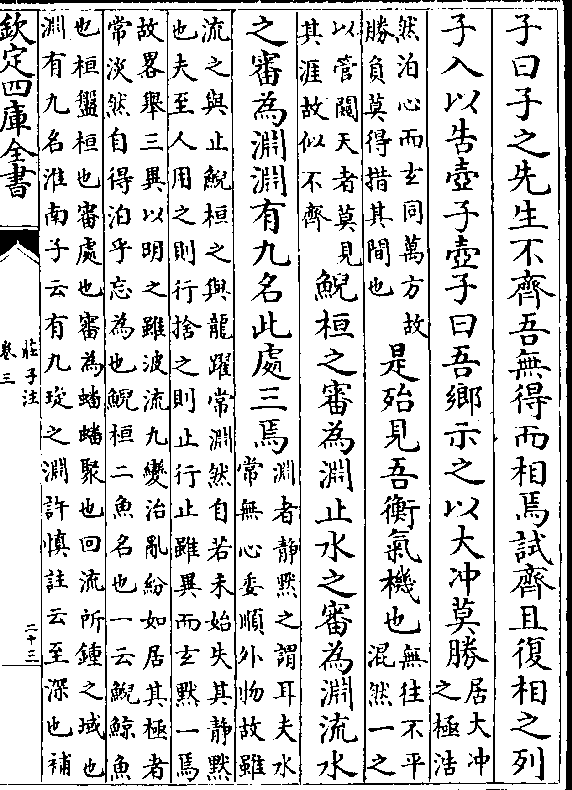 子曰子之先生不齊吾無得而相焉試齊且復相之列
子入以告壺子壺子曰吾鄉示之以大冲莫勝
居大冲
之極浩
然泊心而玄同萬方故
勝負莫得措其間也
是殆見吾衡氣機也
無往不平
混然一之
以管闚天者莫見
其涯故似不齊
鯢桓之審為淵止水之審為淵流水
之審為淵淵有九名此處三焉
淵者静黙之謂耳夫水
常無心委順外物故雖
流之與止鯢桓之與龍躍常淵然自若未始失其静黙
也夫至人用之則行捨之則止行止雖異而玄黙一焉
故畧舉三異以明之雖波流九變治亂紛如居其極者
常淡然自得泊乎忘為也鯢桓二魚名也一云鯢鯨魚
也桓盤桓也審處也審為蟠蟠聚也回流所鍾之域也
淵有九名淮南子云有九琁之淵許慎註云至深也補
欽定四庫全書
莊子注
卷三
二十三